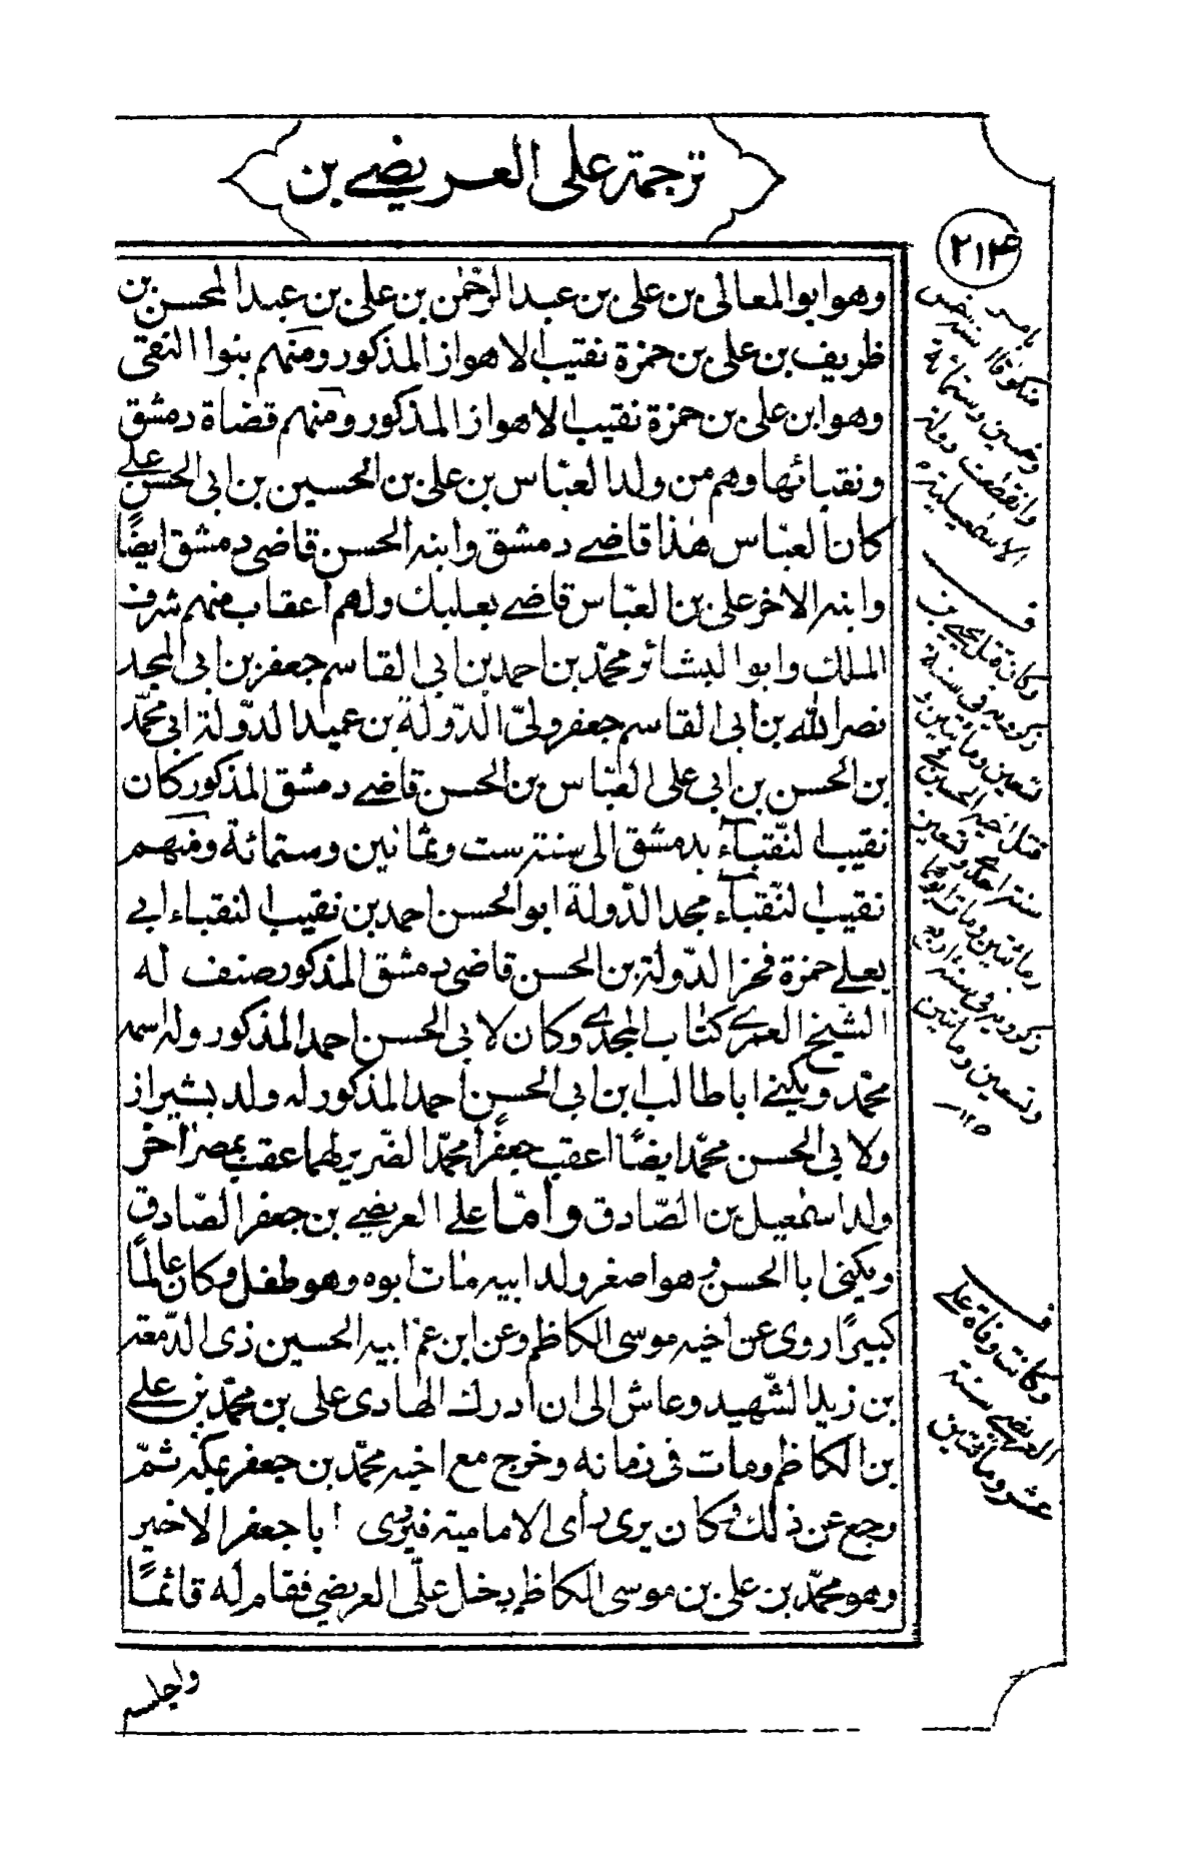 ترجمة على العريضے بن
٢١۴
وهو ابو المعالى بن على بن عبد الرّحمٰن بن على بن عبد المحسن بن
ظريف بن على بن حمزة نقيب الاهواز المذكور ومنهم بنوا التقى
وهو ابن على بن حمزة نقيب الاهواز المذكور ومنهم قضاة دمشق
ونقبائها وهم من ولد العبّاس بن على بن الحسين بن ابى الحسن علے
كان العبّاس هٰذا قاضے دمشق وابنه الحسن قاضى دمشق ايضًا
وابنه الاخر على بن العبّاس قاضے بعلبك ولهم اعقاب منهم شرف
الملك وابو البشائر محمّد بن احمد بن ابى القاسم جعفر بن ابى المجد
نصر الله بن ابى القاسم جعفر ولىّ الدّولة بن عميد الدّولة ابى محمّد
بن الحسن بن ابى على العبّاس بن الحسن قاضے دمشق المذكور كان
نقيب النّقباء بدمشق الى سنة ست وثمانين وستمائة ومنهم
نقيب النّقباء مجد الدّولة ابو الحسن احمد بن نقيب النقباء ابے
يعلے حمزة فخر الدّولة بن الحسن قاضى دمشق المذكور صنف له
الشّيخ العمرے كتاب المجدے وكان لابى الحسن احمد المذكور ولد اسمه
محمّد ويكنى ابا طالب ابن ابى الحسن احمد المذكور له ولد بشيراز
ولابى الحسن محمّد ايضًا اعقب جعفرًا محمّد الضّرير لهما عقب بمصر اخر
ولد اسمٰعيل بن الصّادق وامّا علے العريضے بن جعفر الصّادق
ويكنى ابا الحسن وهو اصغر ولد ابيه مات ابوه وهو طفل وكان عالمًا
كبيرًا روى عن اخيه موسى الكاظم وعن ابن عمّ ابيه الحسين ذى الدّمعة
بن زيد الشّهيد وعاش الى ان ادرك الهادى على بن محمّد بن علے
بن الكاظم ومات فى زمانه وخرج مع اخيه محمّد بن جعفر بمكة ثمّ
رجع عن ذلك وكان يرى رأى الامامية فيروى ابا جعفر الاخير
وهو محمّد بن على بن موسى الكاظم دخل على العريضى فقام له قائمًا
واجلسه
وخمسين وستمائة
وانقطعت دولة
الاسمٰعيلية
وكانت وفاة علے
العريضے سنة
عشر ومائتين